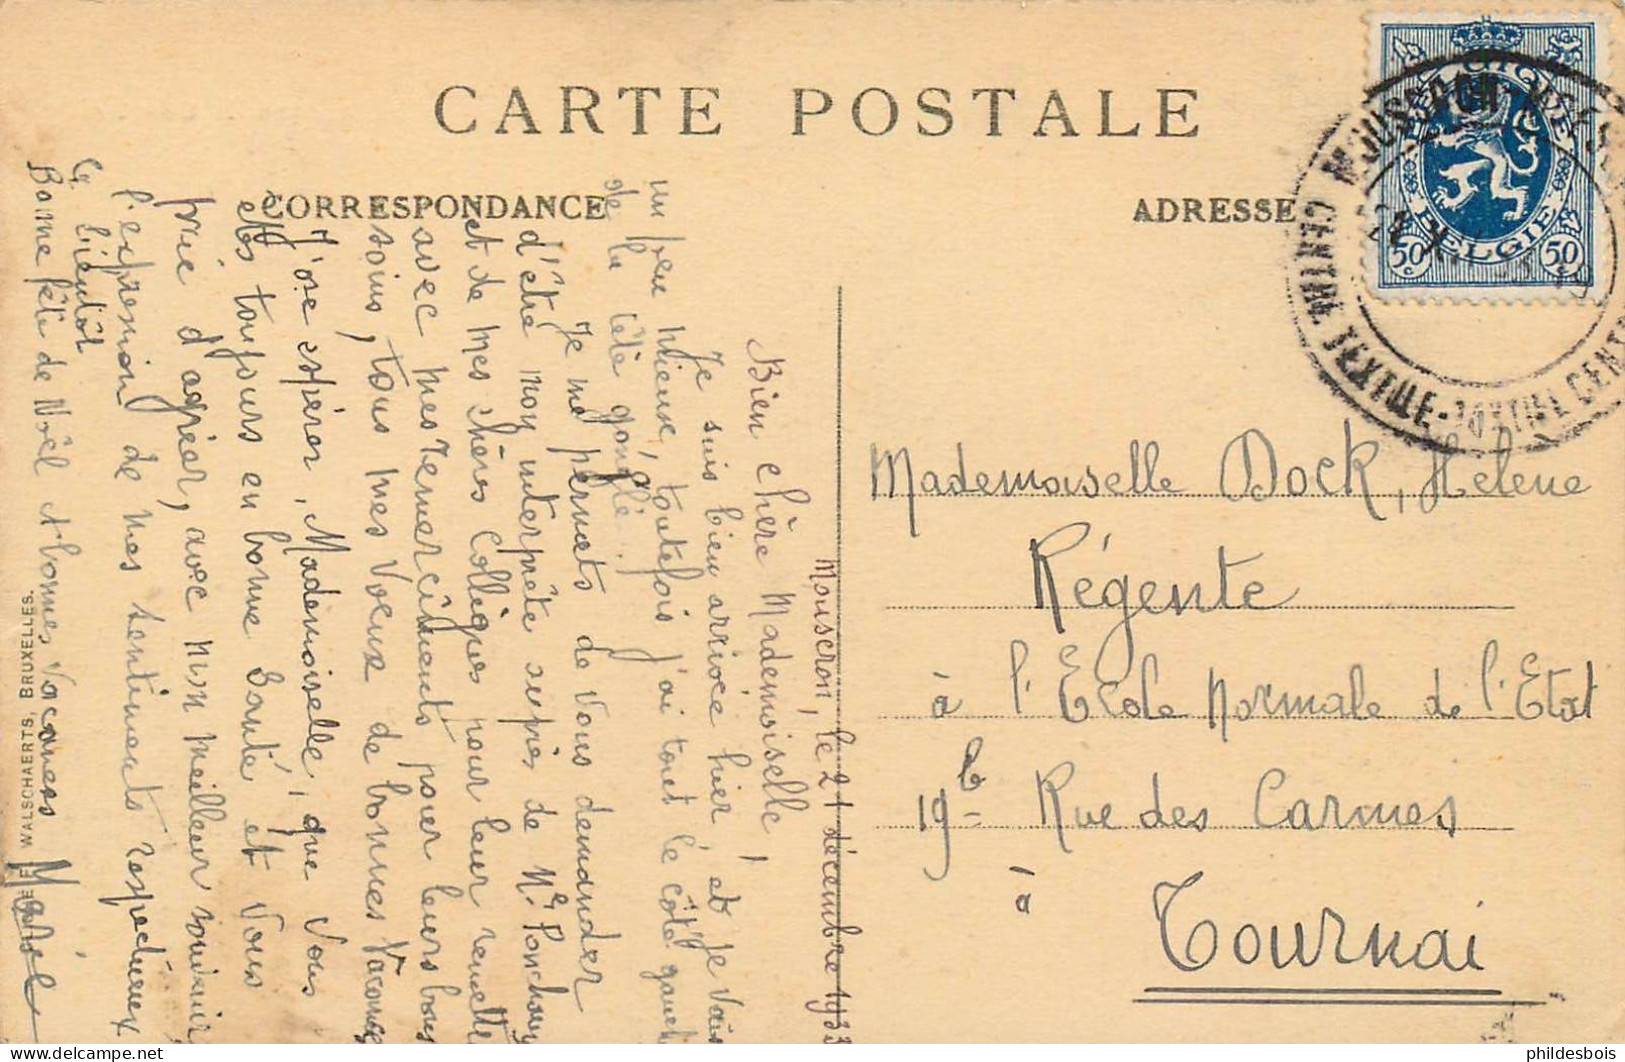 CARTE POSTALE
CORRESPONDANCE
ADRESSE
BELGIQUE
BELGIE
50c
50c
MOUSCRON
CENTRE TEXTILE - TEXTIEL CENTR
Mouscron, le 21 décembre 1933
Bien chère Mademoiselle,
Je suis bien arrivée hier, et Je vais
un peu mieuse, toutefois j'ai tout le côté gauche
de la tête gonflé.
Je me permets de Vous demander
d'être mon interprète auprès de Me Ponchau
et de mes chères Collègues pour leur remettre
avec mes remerciements pour leurs bons
soins, tous mes Voeux de bonnes Vacances
J'ose espérer, Mademoiselle, que Vous
êtes toujours en bonne Santé, et Vous
prie d'agréer, avec mon meilleur souvenir,
l'expression de mes sentiments respectueux
à bientôt
Bonne fête de Noël et bonnes Vacances
Mademoiselle Dock, Helene
Régente
à l'Ecole Normale de l'Etat
19b Rue des Carmes
à
Tournai
WALSCHAERTS, BRUXELLES.
phildesbois